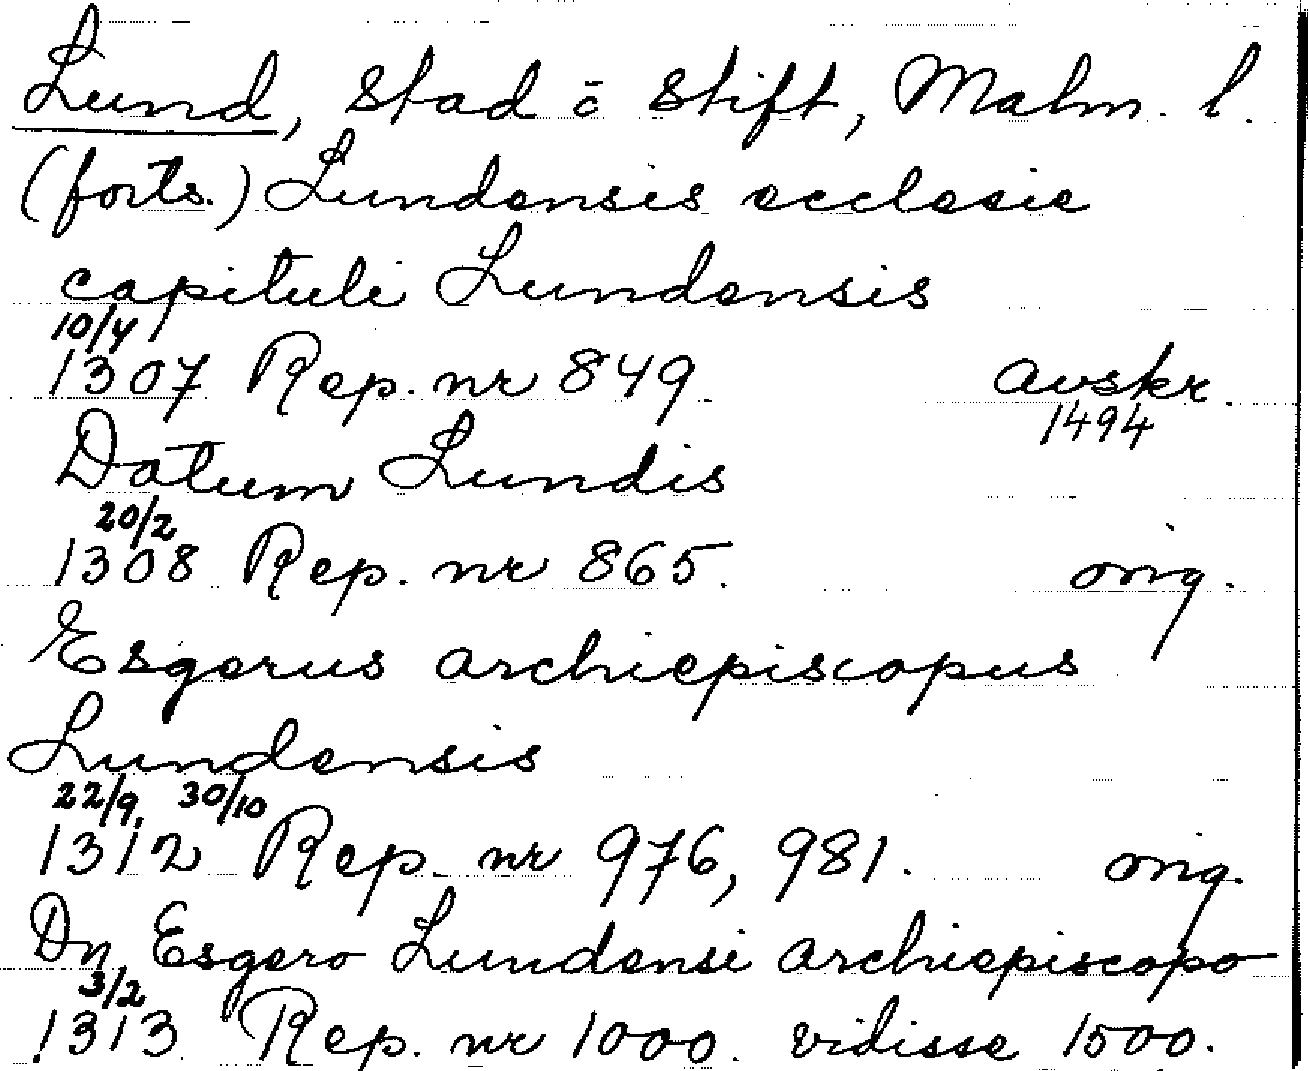 Lund, stad o stift, Malm. l.
(forts.) Lundensis ecclesie
capituli Lundensis
10/4
1307 Rep. nr 849. avskr.
1494
Datum Lundis
20/2
1308 Rep. nr 865. orig.
Esgerus archiepiscopus
Lundensis
22/9, 30/10
1312 Rep. nr 976, 981. orig.
Dn Esgero Lundensi archiepiscopo
3/2
1313 Rep. nr 1000. vidisse 1500.